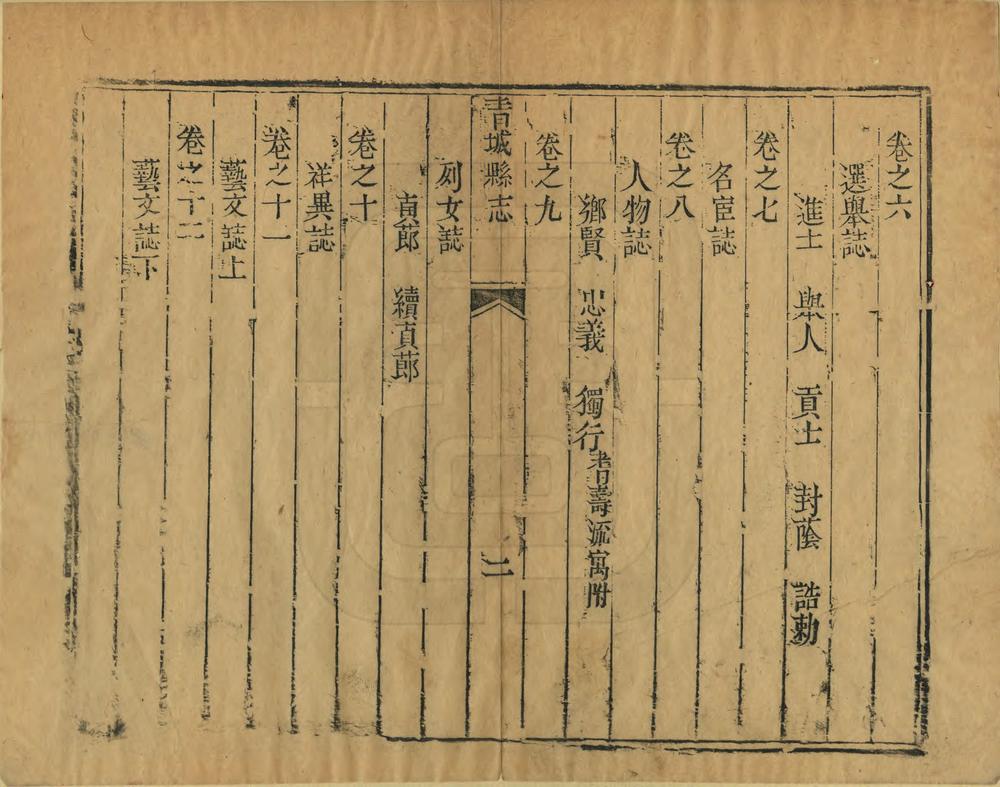 卷之六
選舉誌
進士 舉人 貢士 封蔭 誥勅
卷之七
名宦誌
卷之八
人物誌
鄉賢 忠義 獨行耆壽流寓附
卷之九
青城縣志 二
列女誌
貞節 續貞節
卷之十
祥異誌
卷之十一
藝文誌上
卷之十二
藝文誌下